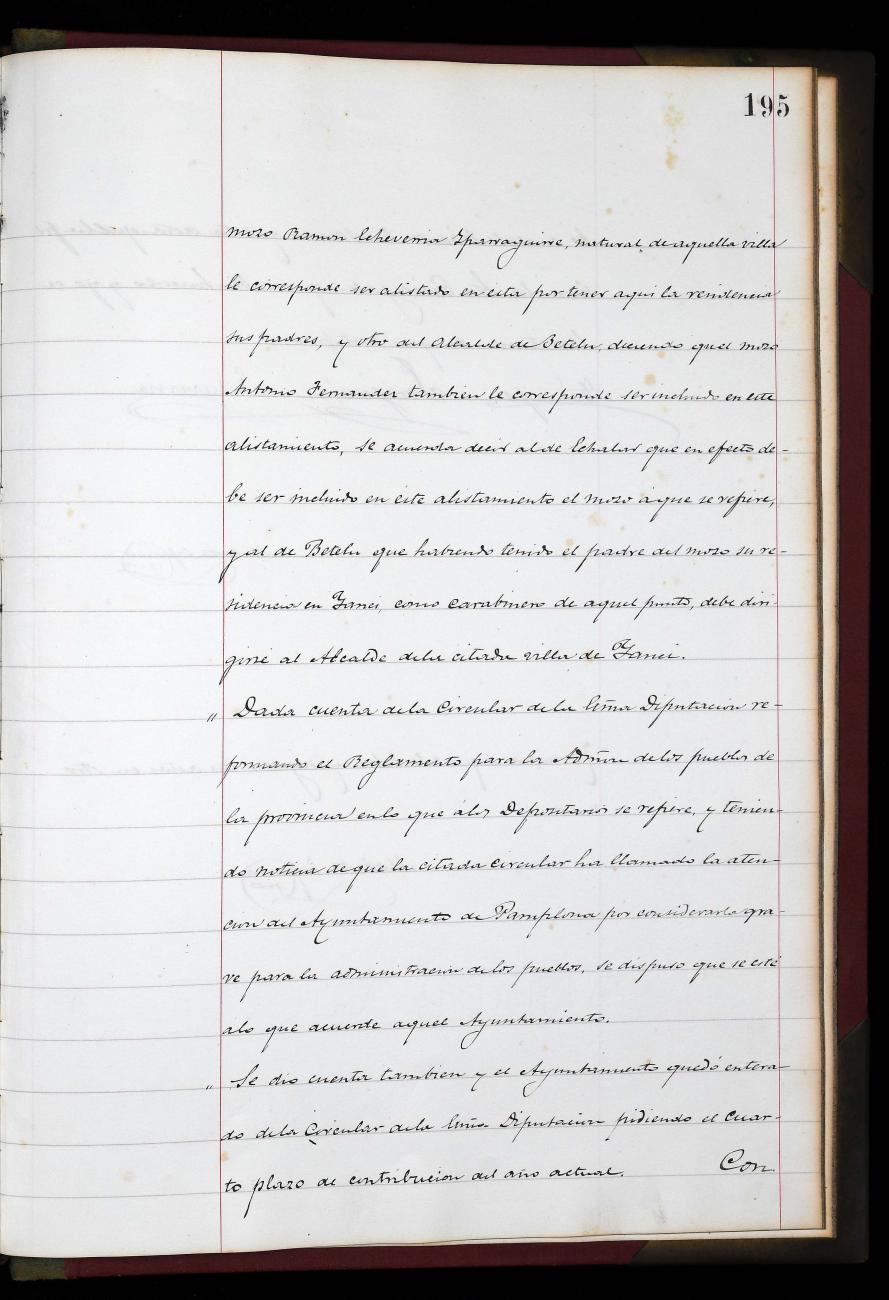 195
mozo Ramon Echeverria Yparraguirre, natural de aquella villa
le corresponde ser alistado en esta por tener aqui la residencia
sus padres, y otro del Alcalde de Betelu, diciendo qe el mozo
Antonio Fernandez tambien le corresponde ser incluido en este
alistamiento, se acuerda decir al de Echalar que en efecto de-
be ser incluido en este alistamiento el mozo á que se refiere,
y al de Betelu que habiendo tenido el padre del mozo su re-
sidencia en Yanci, como carabinero de aquel punto, debe diri-
girse al Alcalde dela citada villa de Yanci.
" Dada cuenta dela Circular dela Exma Diputacion re-
formando el Reglamento para la Admon delos pueblos de
la provincia en lo que á los Depositarios se refiere, y tenien-
do noticia de que la citada circular ha llamado la aten-
cion del Ayuntamiento de Pamplona por considerarla gra-
ve para la administracion delos pueblos, se dispuso que se esté
alo que acuerde aquel Ayuntamiento.
" Se dio cuenta tambien y el Ayuntamiento quedó entera-
do dela Circular dela Exma Diputacion pidiendo el cuar-
to plazo de contribucion del año actual. Con